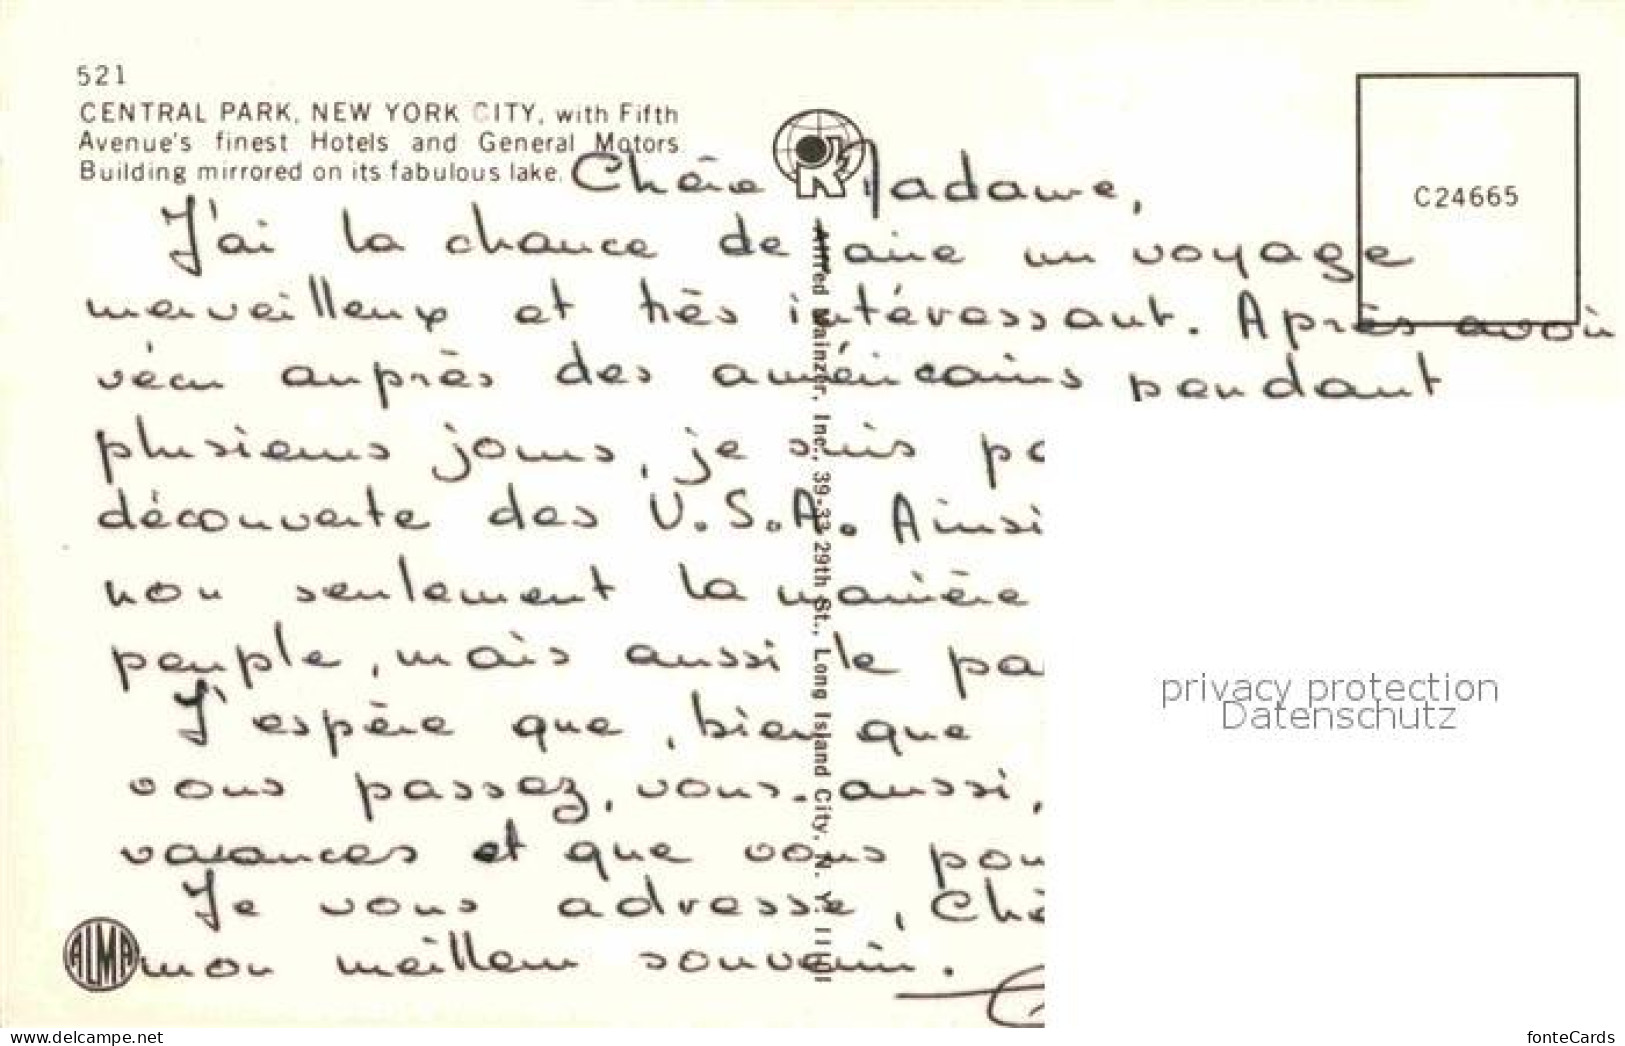 521
CENTRAL PARK, NEW YORK CITY, with Fifth
Avenue's finest Hotels and General Motors
Building mirrored on its fabulous lake.
C24665
Chère Madame,
J'ai la chance de faire un voyage
merveilleux et très intéressant. Après avoir
vécu auprès des américains pendant
plusieurs jours, je suis
découverte des U.S.A. Ainsi
non seulement la manière
peuple, mais aussi le
J'espère que, bien que
vous passez, vous aussi,
vacances et que vous
Je vous adresse,
mon meilleur souvenir.
Alfred Mainzer, Inc., 39-33 29th St., Long Island City, N. Y. 11101
ALMA
privacy protection
Datenschutz
www.delcampe.net
fonteCards